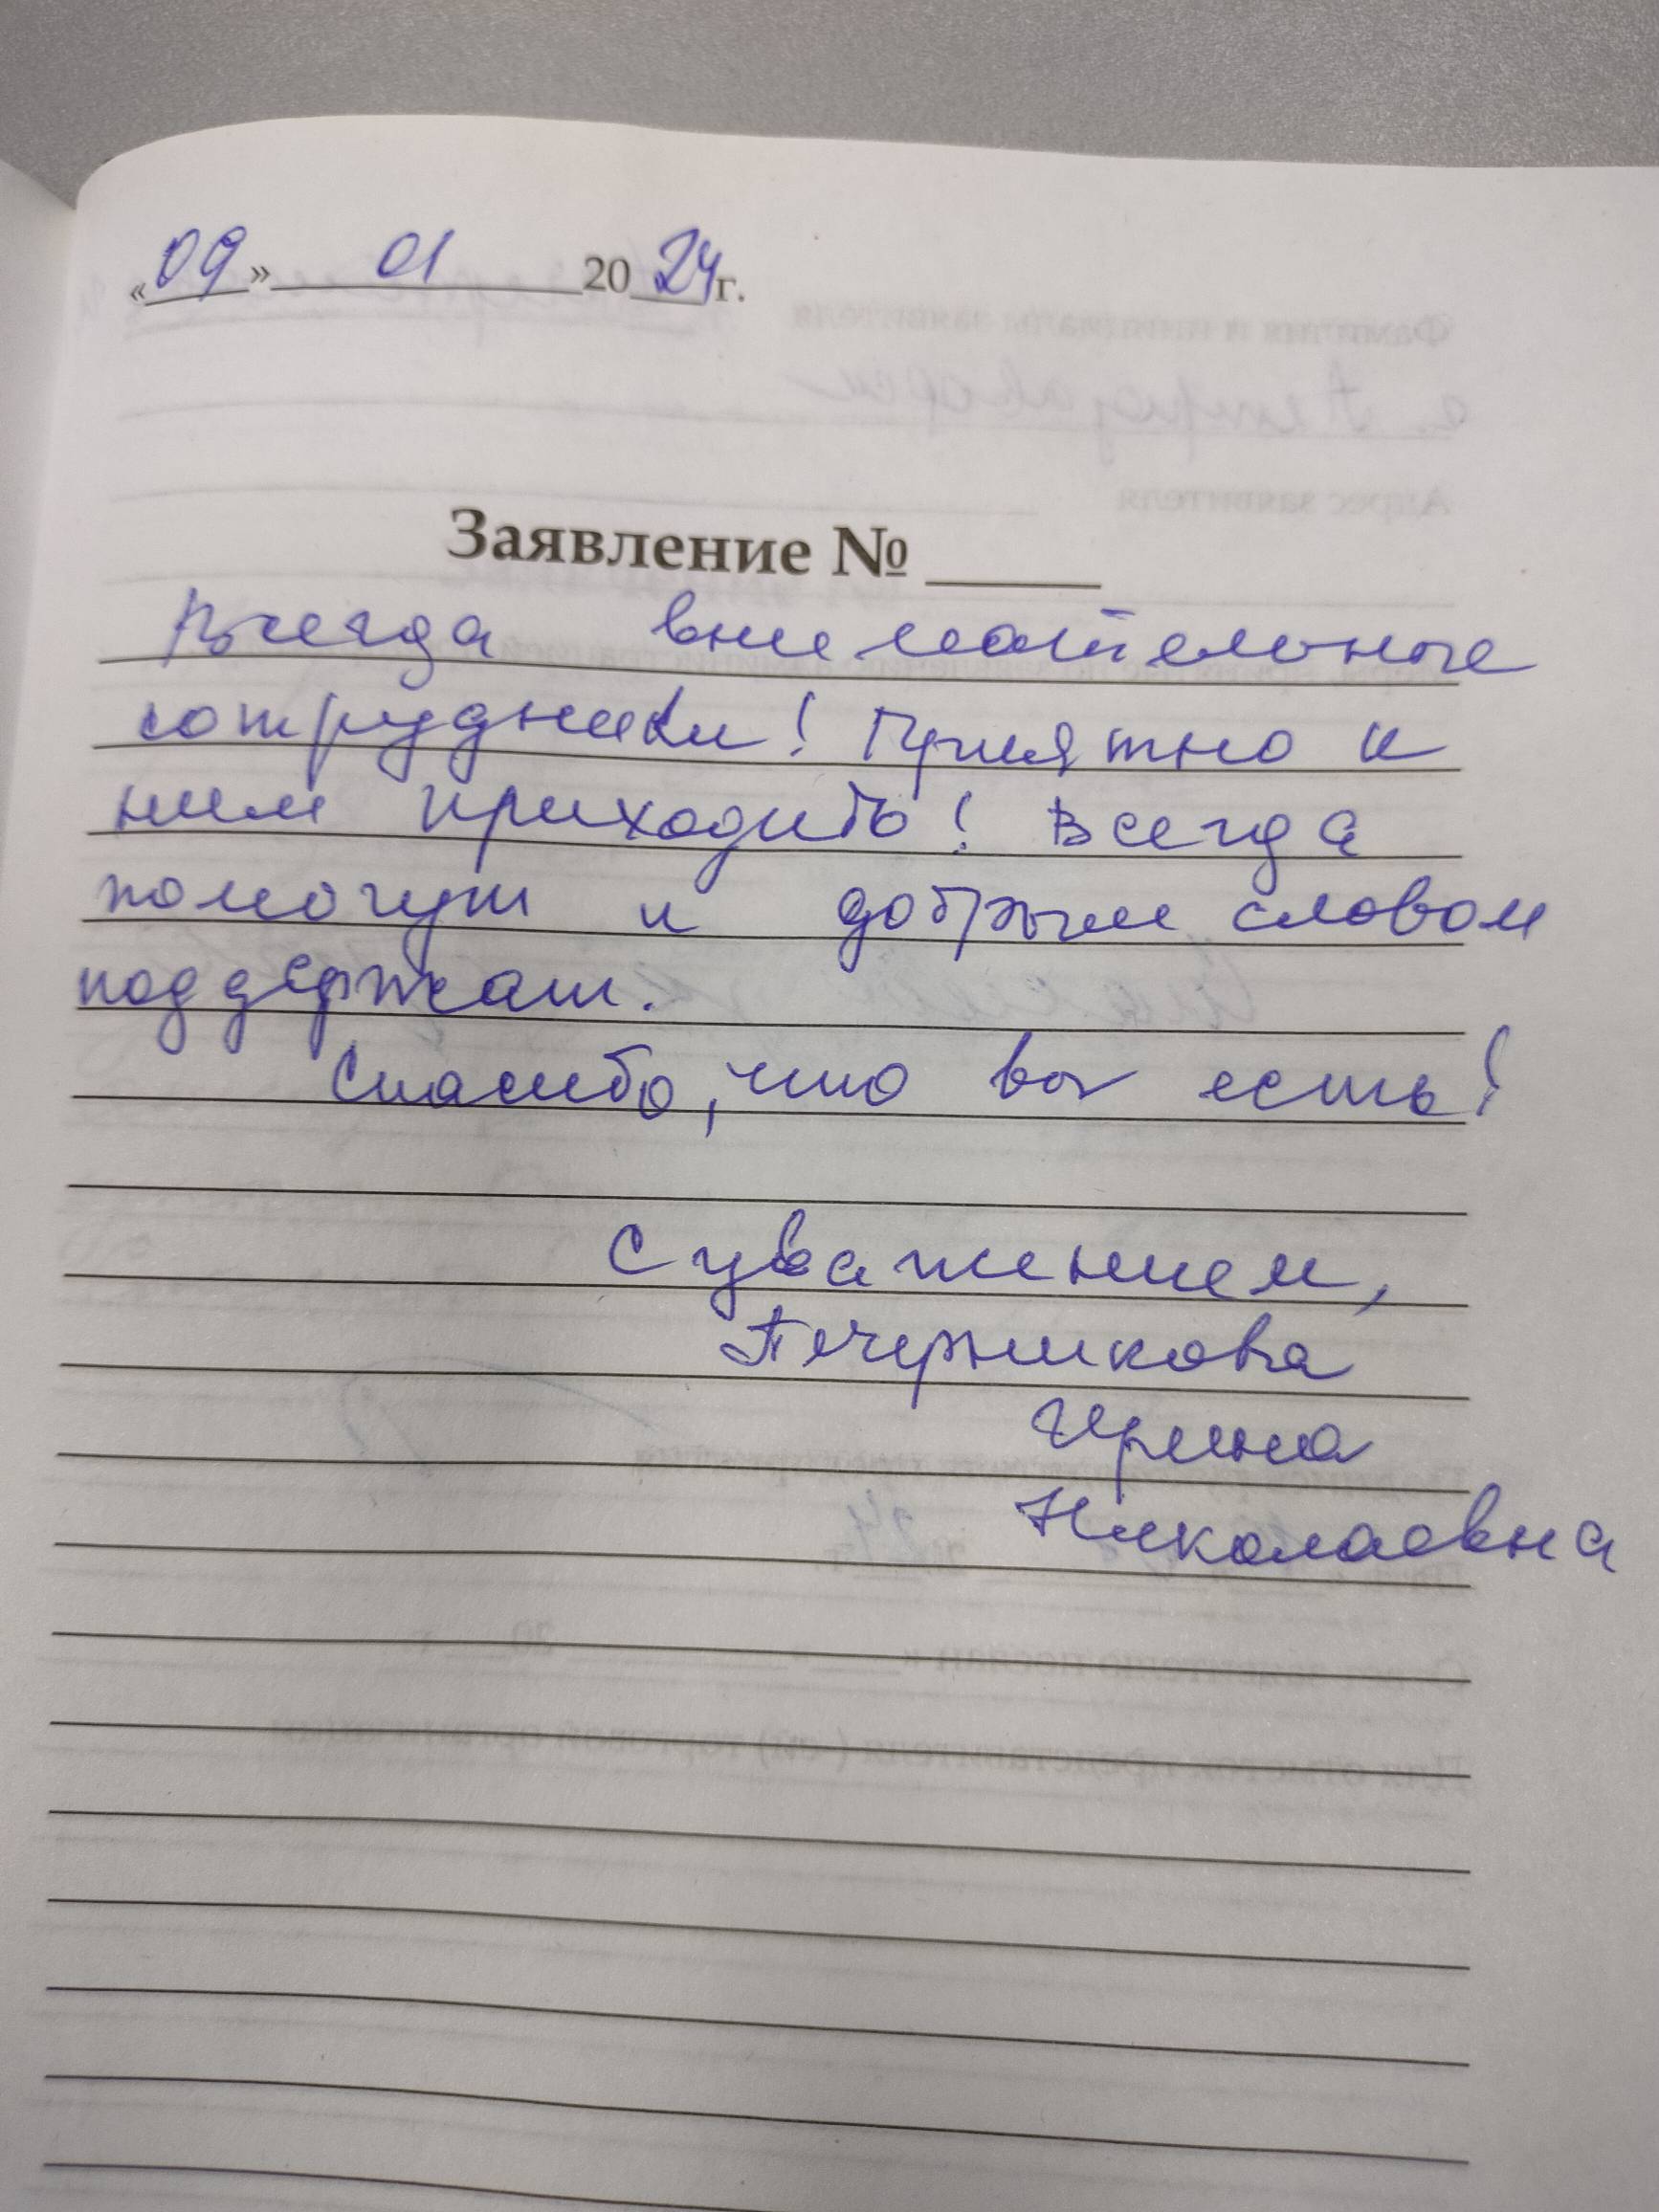 «09» 01 2024 г.
Заявление № ____
Всегда внимательные
сотрудники! Приятно к
ним приходить! Всегда
помогут и добрым словом
поддержат.
Спасибо, что вы есть!
С уважением,
Печерникова
Ирина
Николаевна